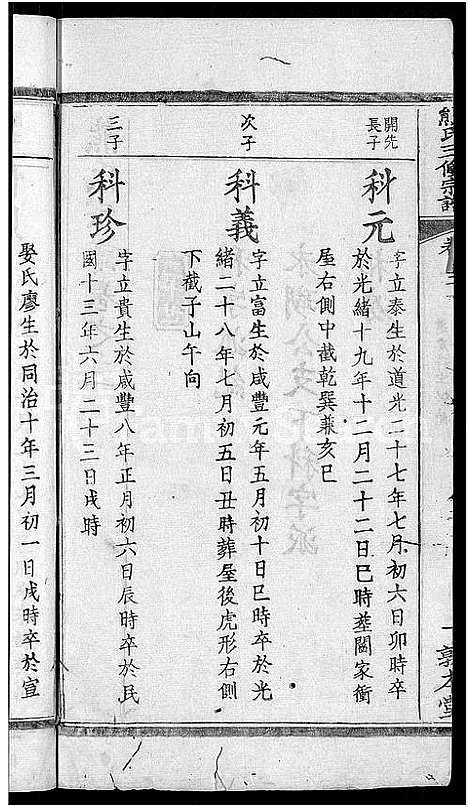 熊氏三修宗譜
卷
一敦本堂
開先
長子
科元
字立泰生於道光二十七年七月初六日卯時卒
於光緒十九年十二月二十二日巳時葬閣家衝
屋右側中截乾巽兼亥巳
次子
科義
字立富生於咸豐元年五月初十日巳時卒於光
緒二十八年七月初五日丑時葬屋後虎形右側
下截子山午向
三子
科珍
字立貴生於咸豐八年正月初六日辰時卒於民
國十三年六月二十三日戌時
娶氏廖生於同治十年三月初一日戌時卒於宣